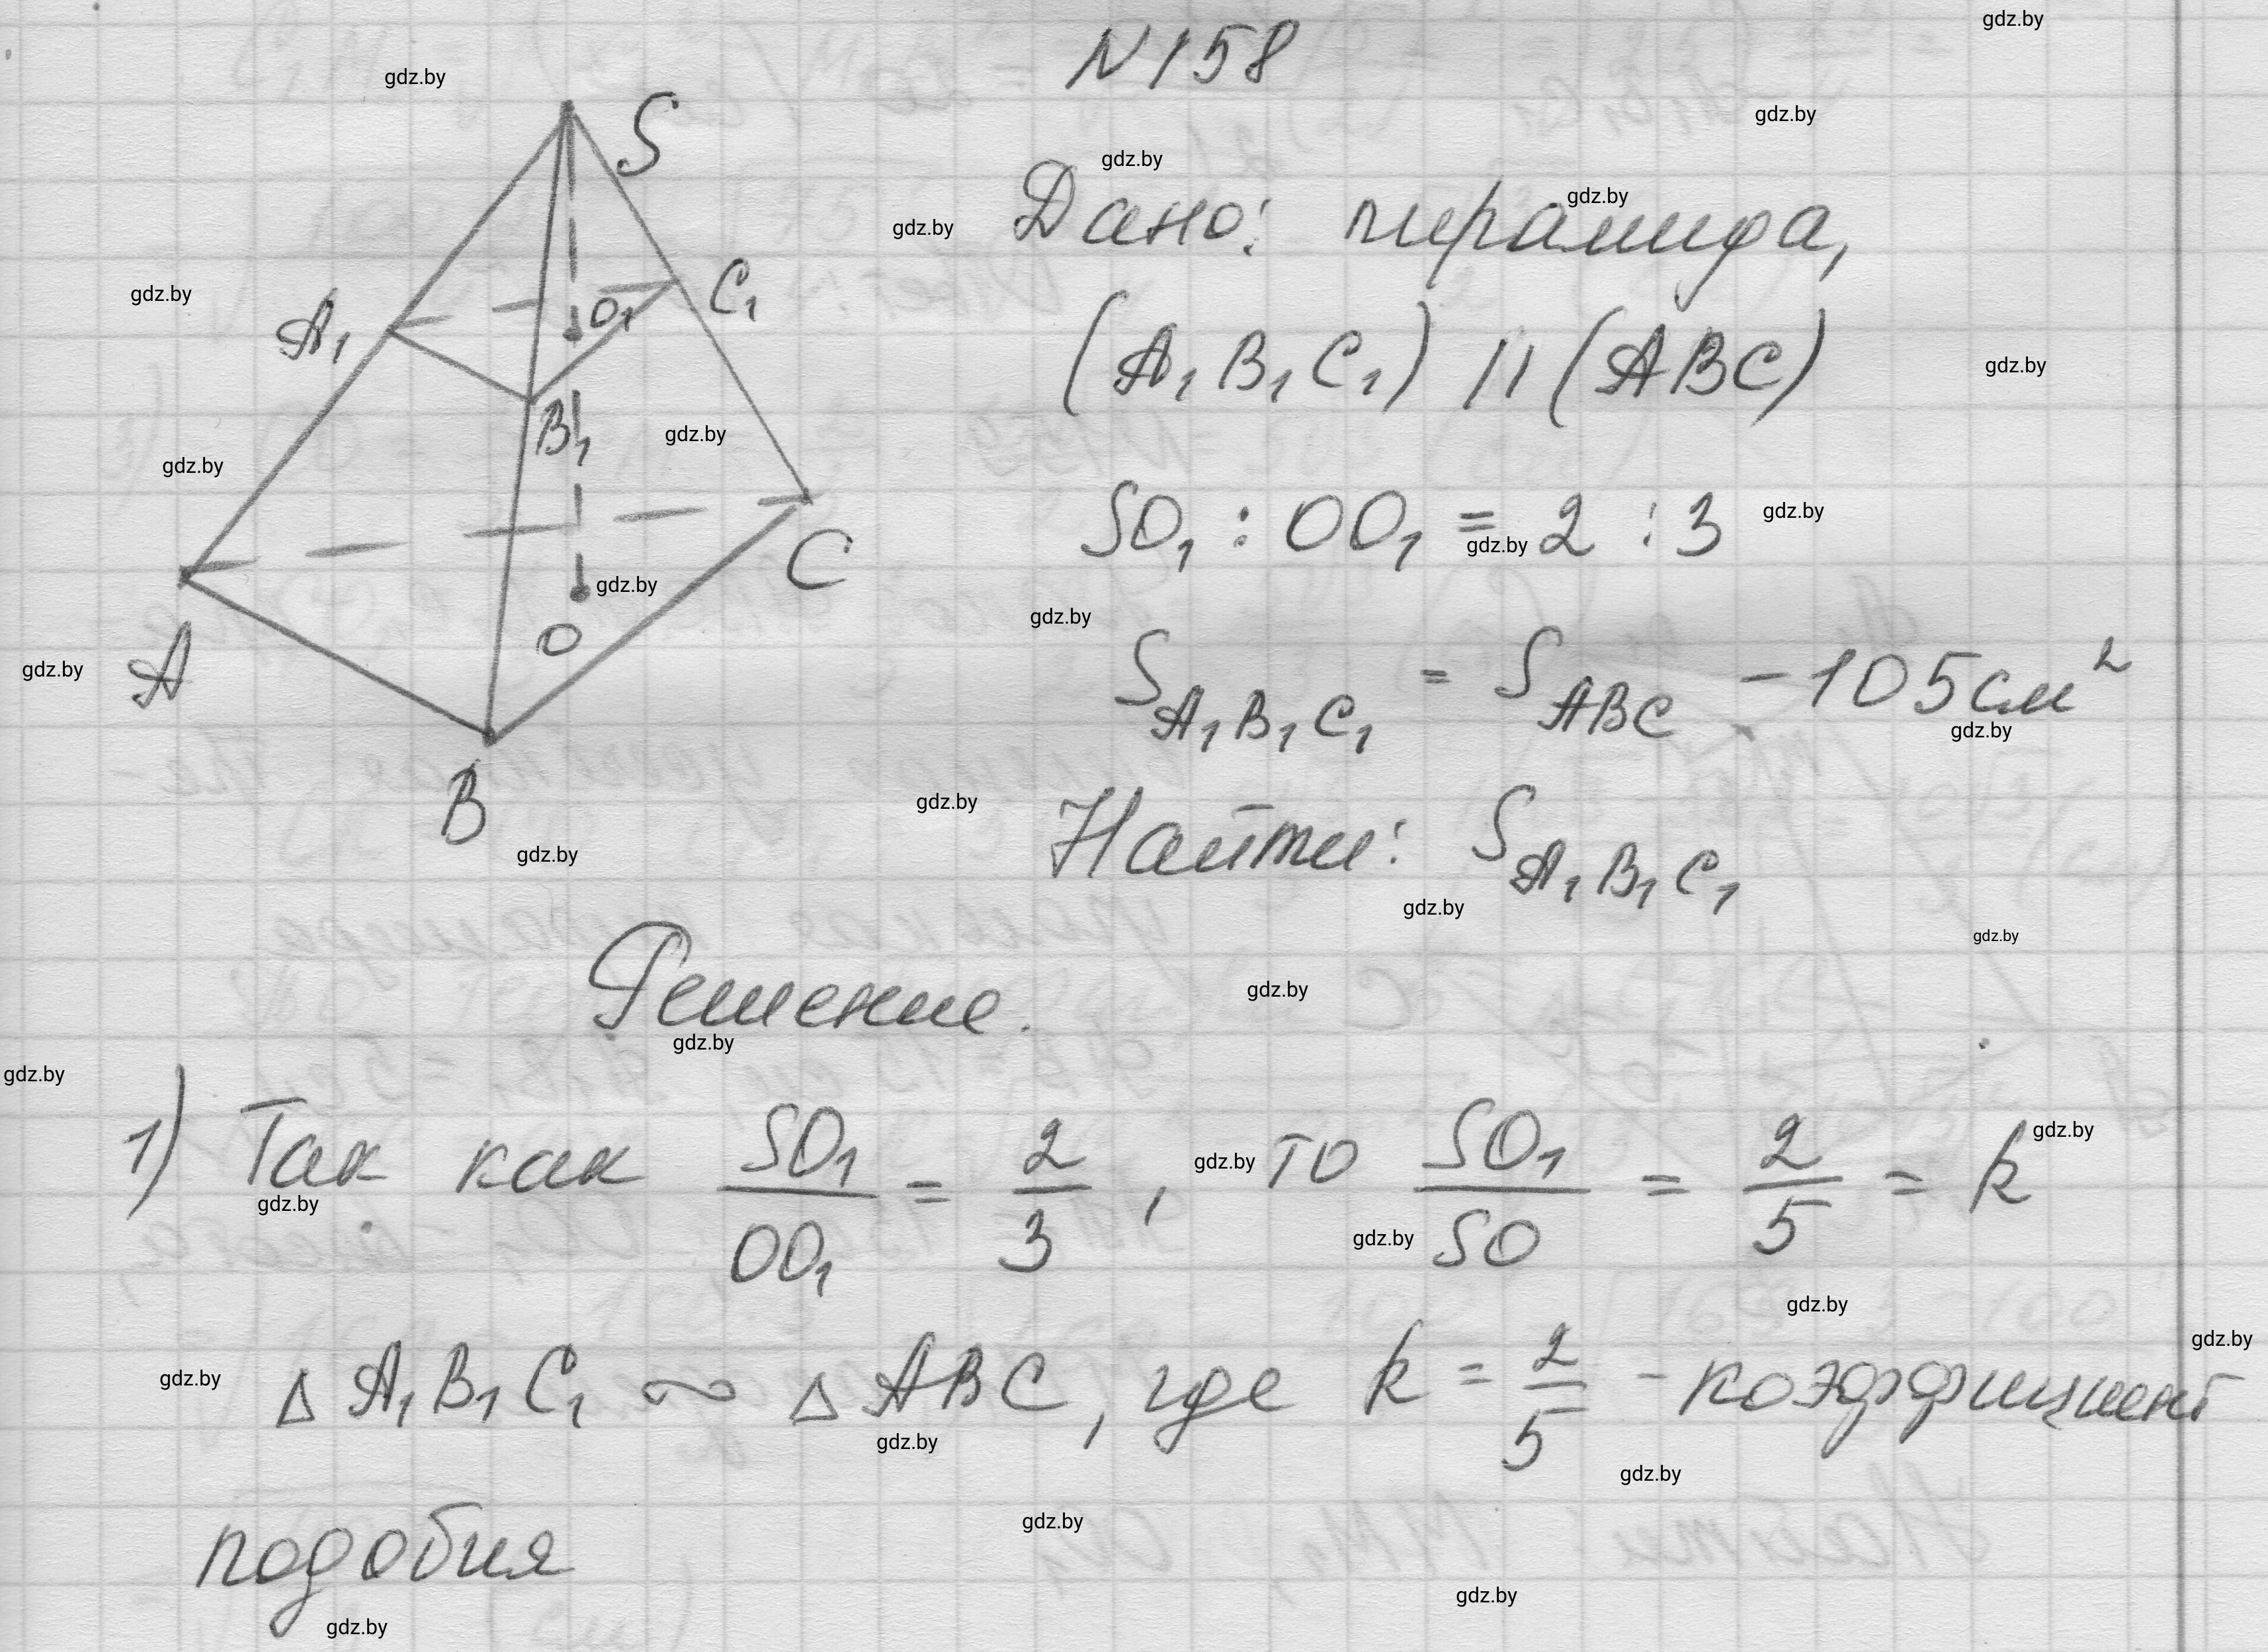 N158
S
Дано: пирамида,
A₁ O₁ C₁
(A₁B₁C₁) || (ABC)
B₁
SO₁ : OO₁ = 2 : 3
C
O
A
S A₁B₁C₁ = S ABC - 105 см²
B
Найти: S A₁B₁C₁
Решение.
1) Так как SO₁/OO₁ = 2/3, то SO₁/SO = 2/5 = k
Δ A₁B₁C₁ ∾ Δ ABC, где k = 2/5 - коэффициент
подобия
gdz.by